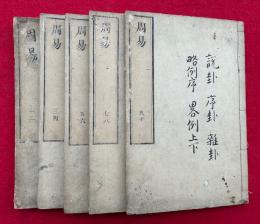 周易
一二
周易
三四
周易
五六
周易
七八
周易
九十
説卦 序卦 雜卦
略例序 畧例上下